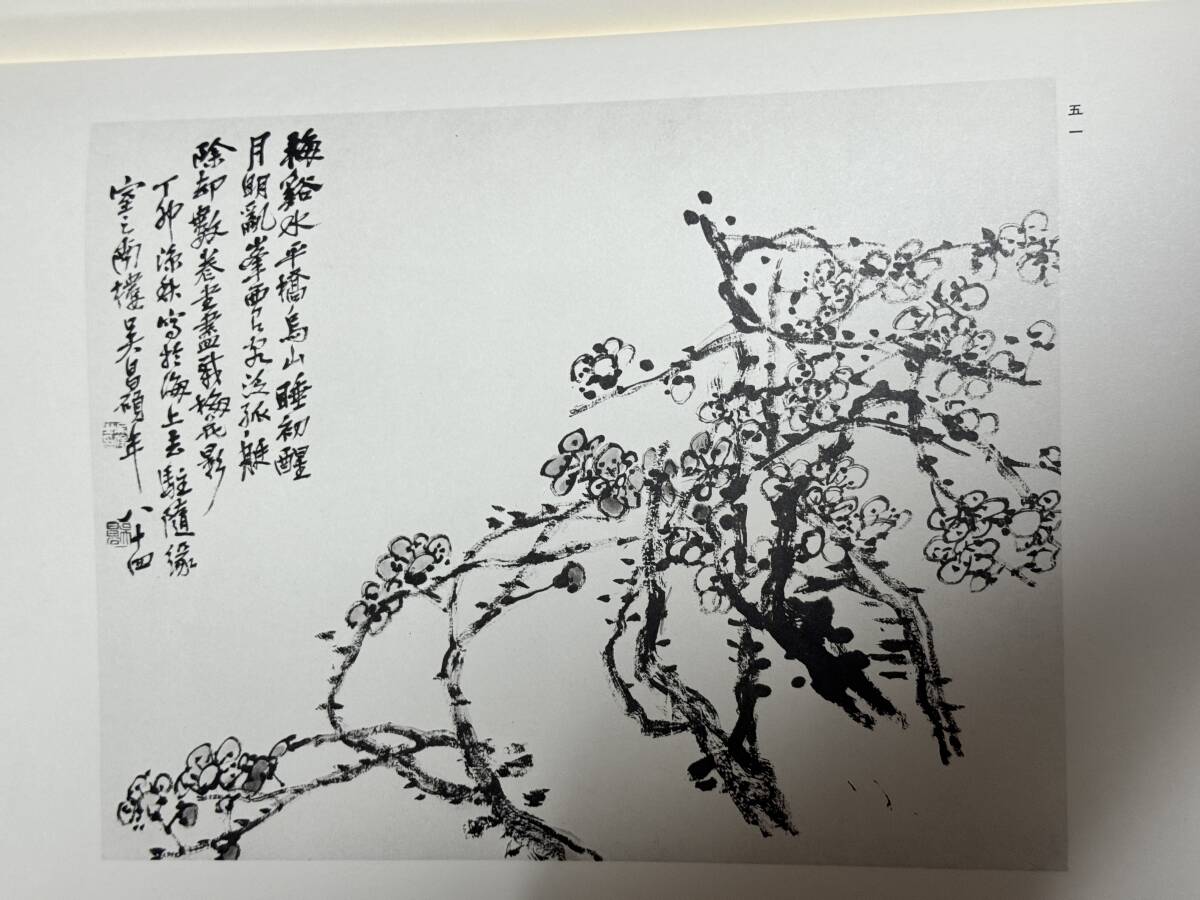 五一
梅谿水平橋烏山睡初醒
月明亂峯西有客泛孤艇
除却數卷書盡載梅花影
丁卯涼秋寫於海上去駐隨緣
室之南樓吳昌碩年八十四